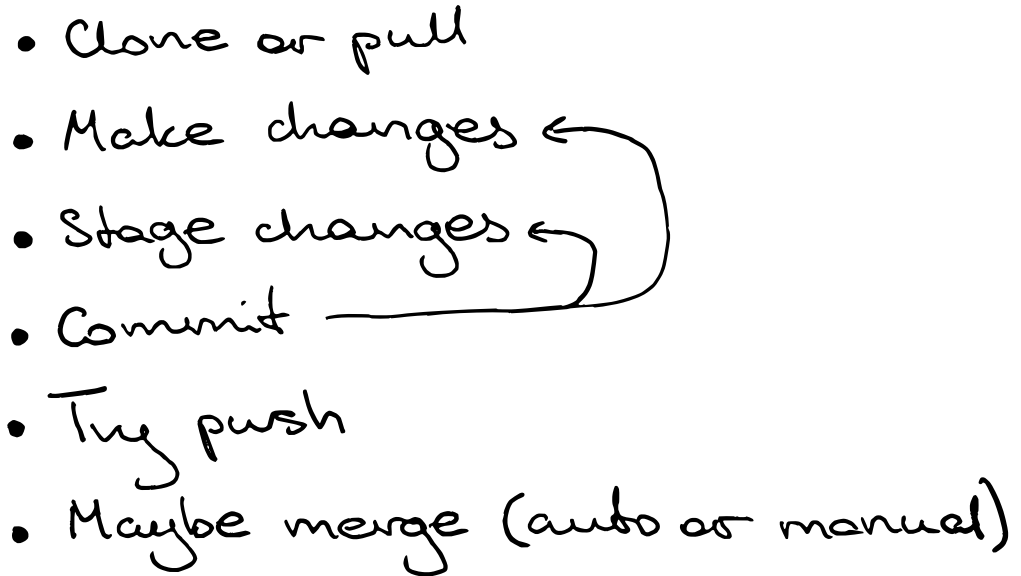 • Clone or pull
• Make changes
• Stage changes
• Commit
• Try push
• Maybe merge (auto or manual)